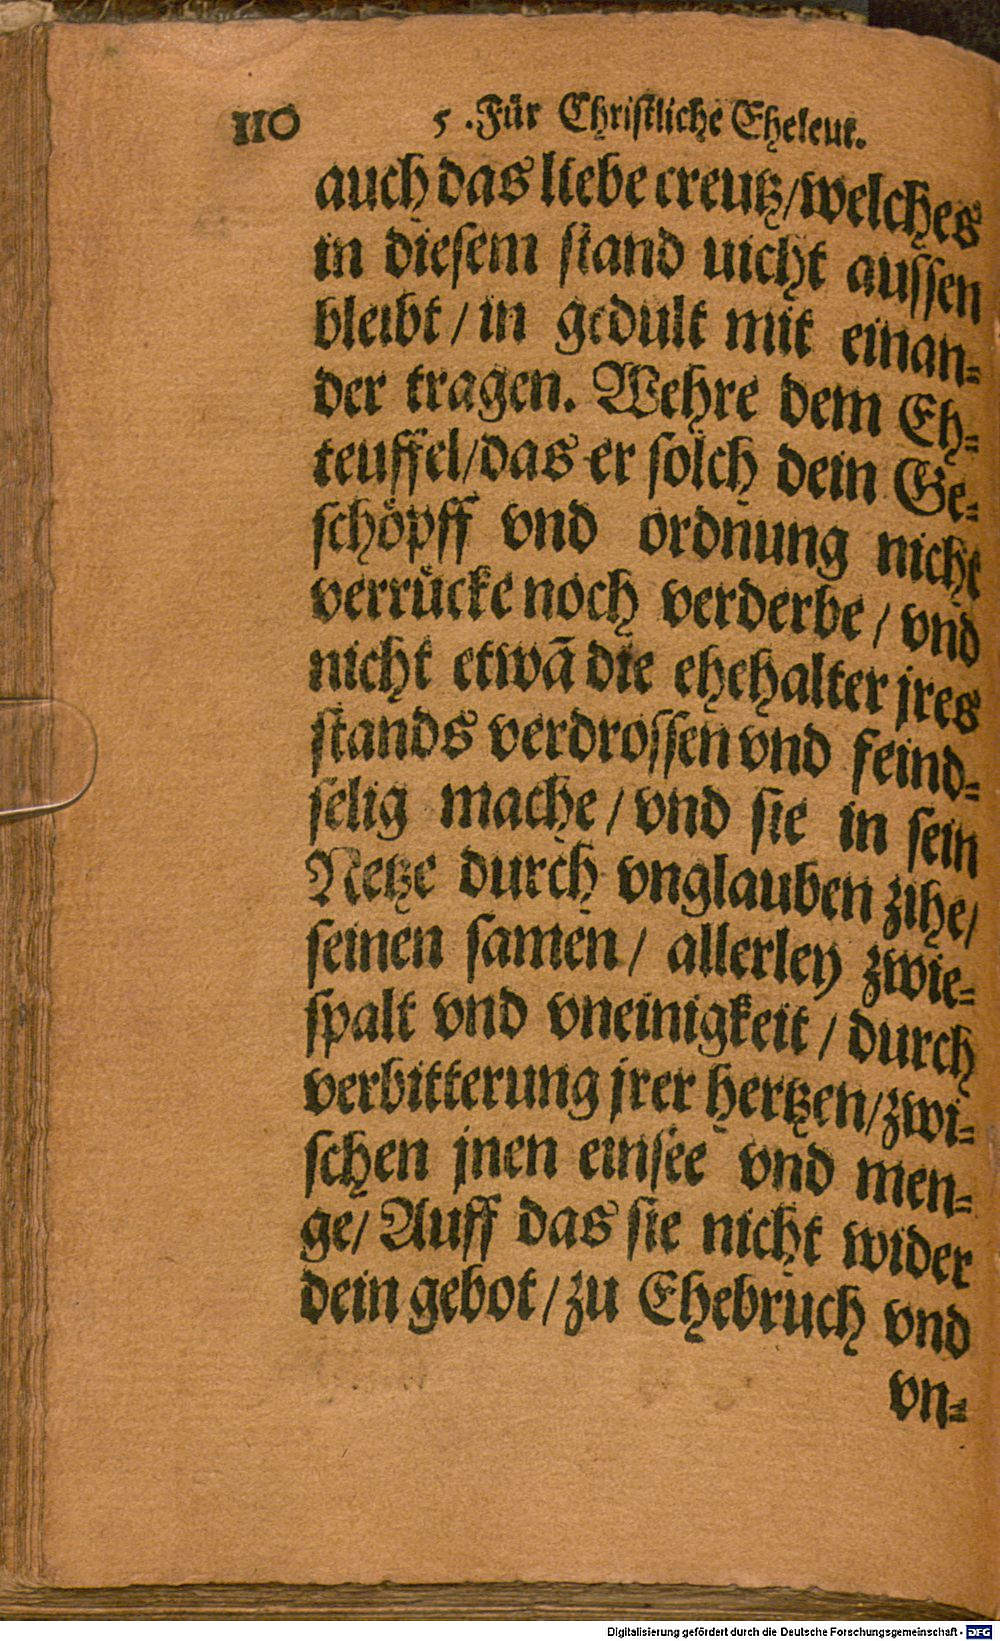 110 5 .Für Christliche Eheleut.
auch das liebe creutz/welches
in diesem stand uicht aussen
bleibt / in gedult mit einan⸗
der tragen. Wehre dem Eh⸗
teuffel/das er solch dein Ge⸗
schöpff vnd ordnung nicht
verrücke noch verderbe / vnd
nicht etwā die ehehalter jres
stands verdrossen vnd feind⸗
selig mache / vnd sie in sein
Netze durch vnglauben zihe/
seinen samen / allerley zwie⸗
spalt vnd vneinigkeit / durch
verbitterung jrer hertzen/zwi⸗
schen jnen einsee vnd men⸗
ge/ Auff das sie nicht wider
dein gebot / zu Ehebruch vnd
vn⸗
Digitalisierung gefördert durch die Deutsche Forschungsgemeinschaft - DFG